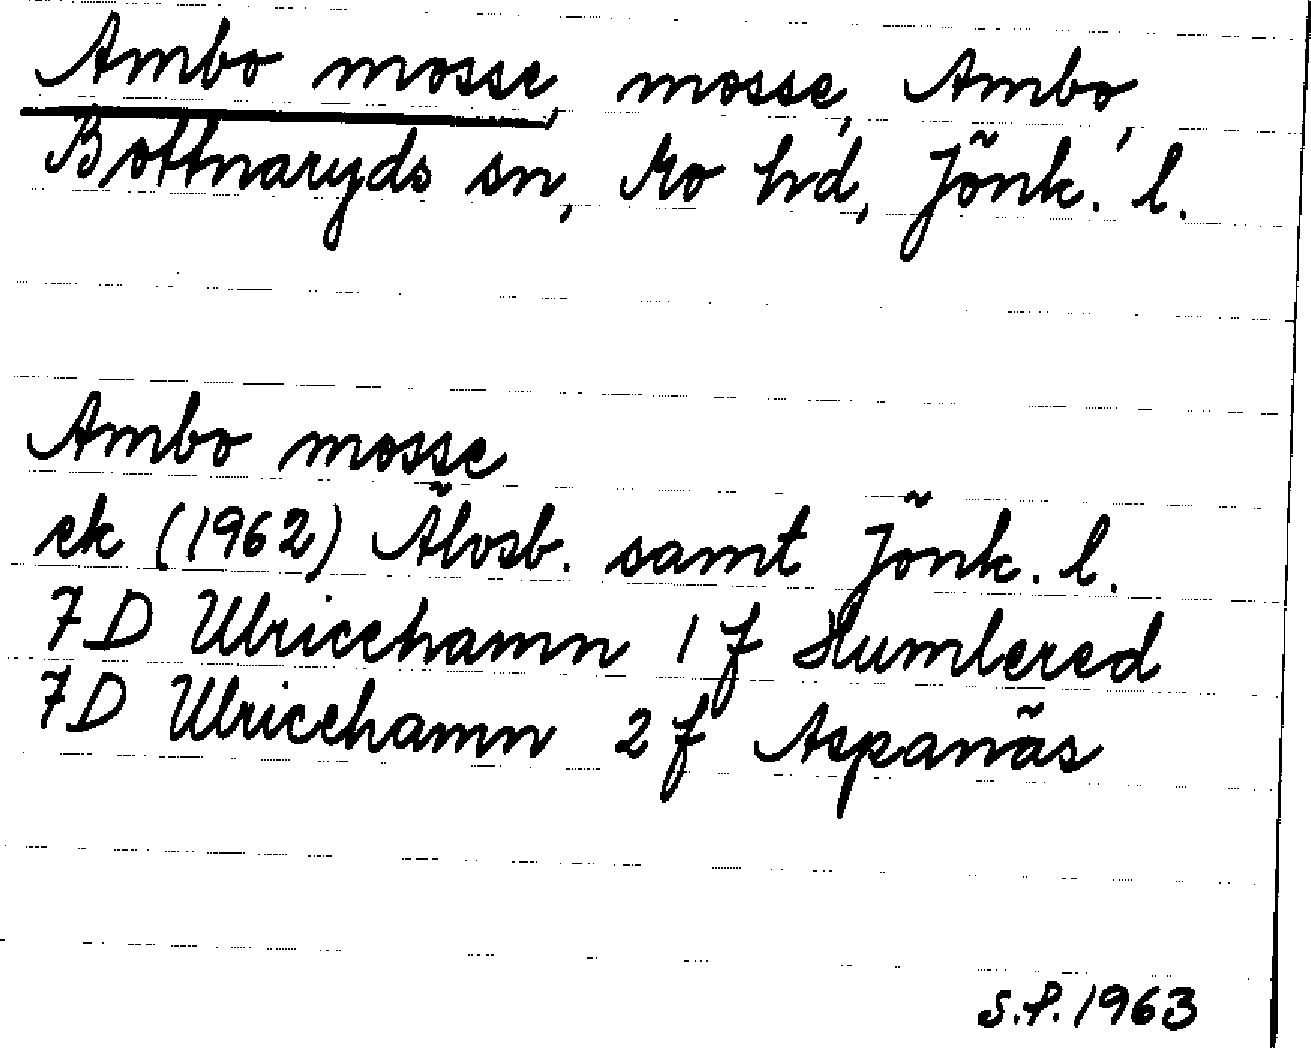 Ambo mosse, mosse, Ambo,
Bottnaryds sn, Mo hd, Jönk. l.
Ambo mosse
ek (1962) Älvsb. samt Jönk. l.
7D Ulricehamn 1 f Humlered
7D Ulricehamn 2 f Aspanäs
S.P. 1963